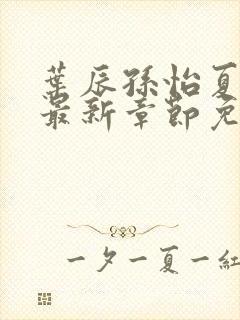 葉辰孫怡夏
最新章節免
一夕一夏一紅